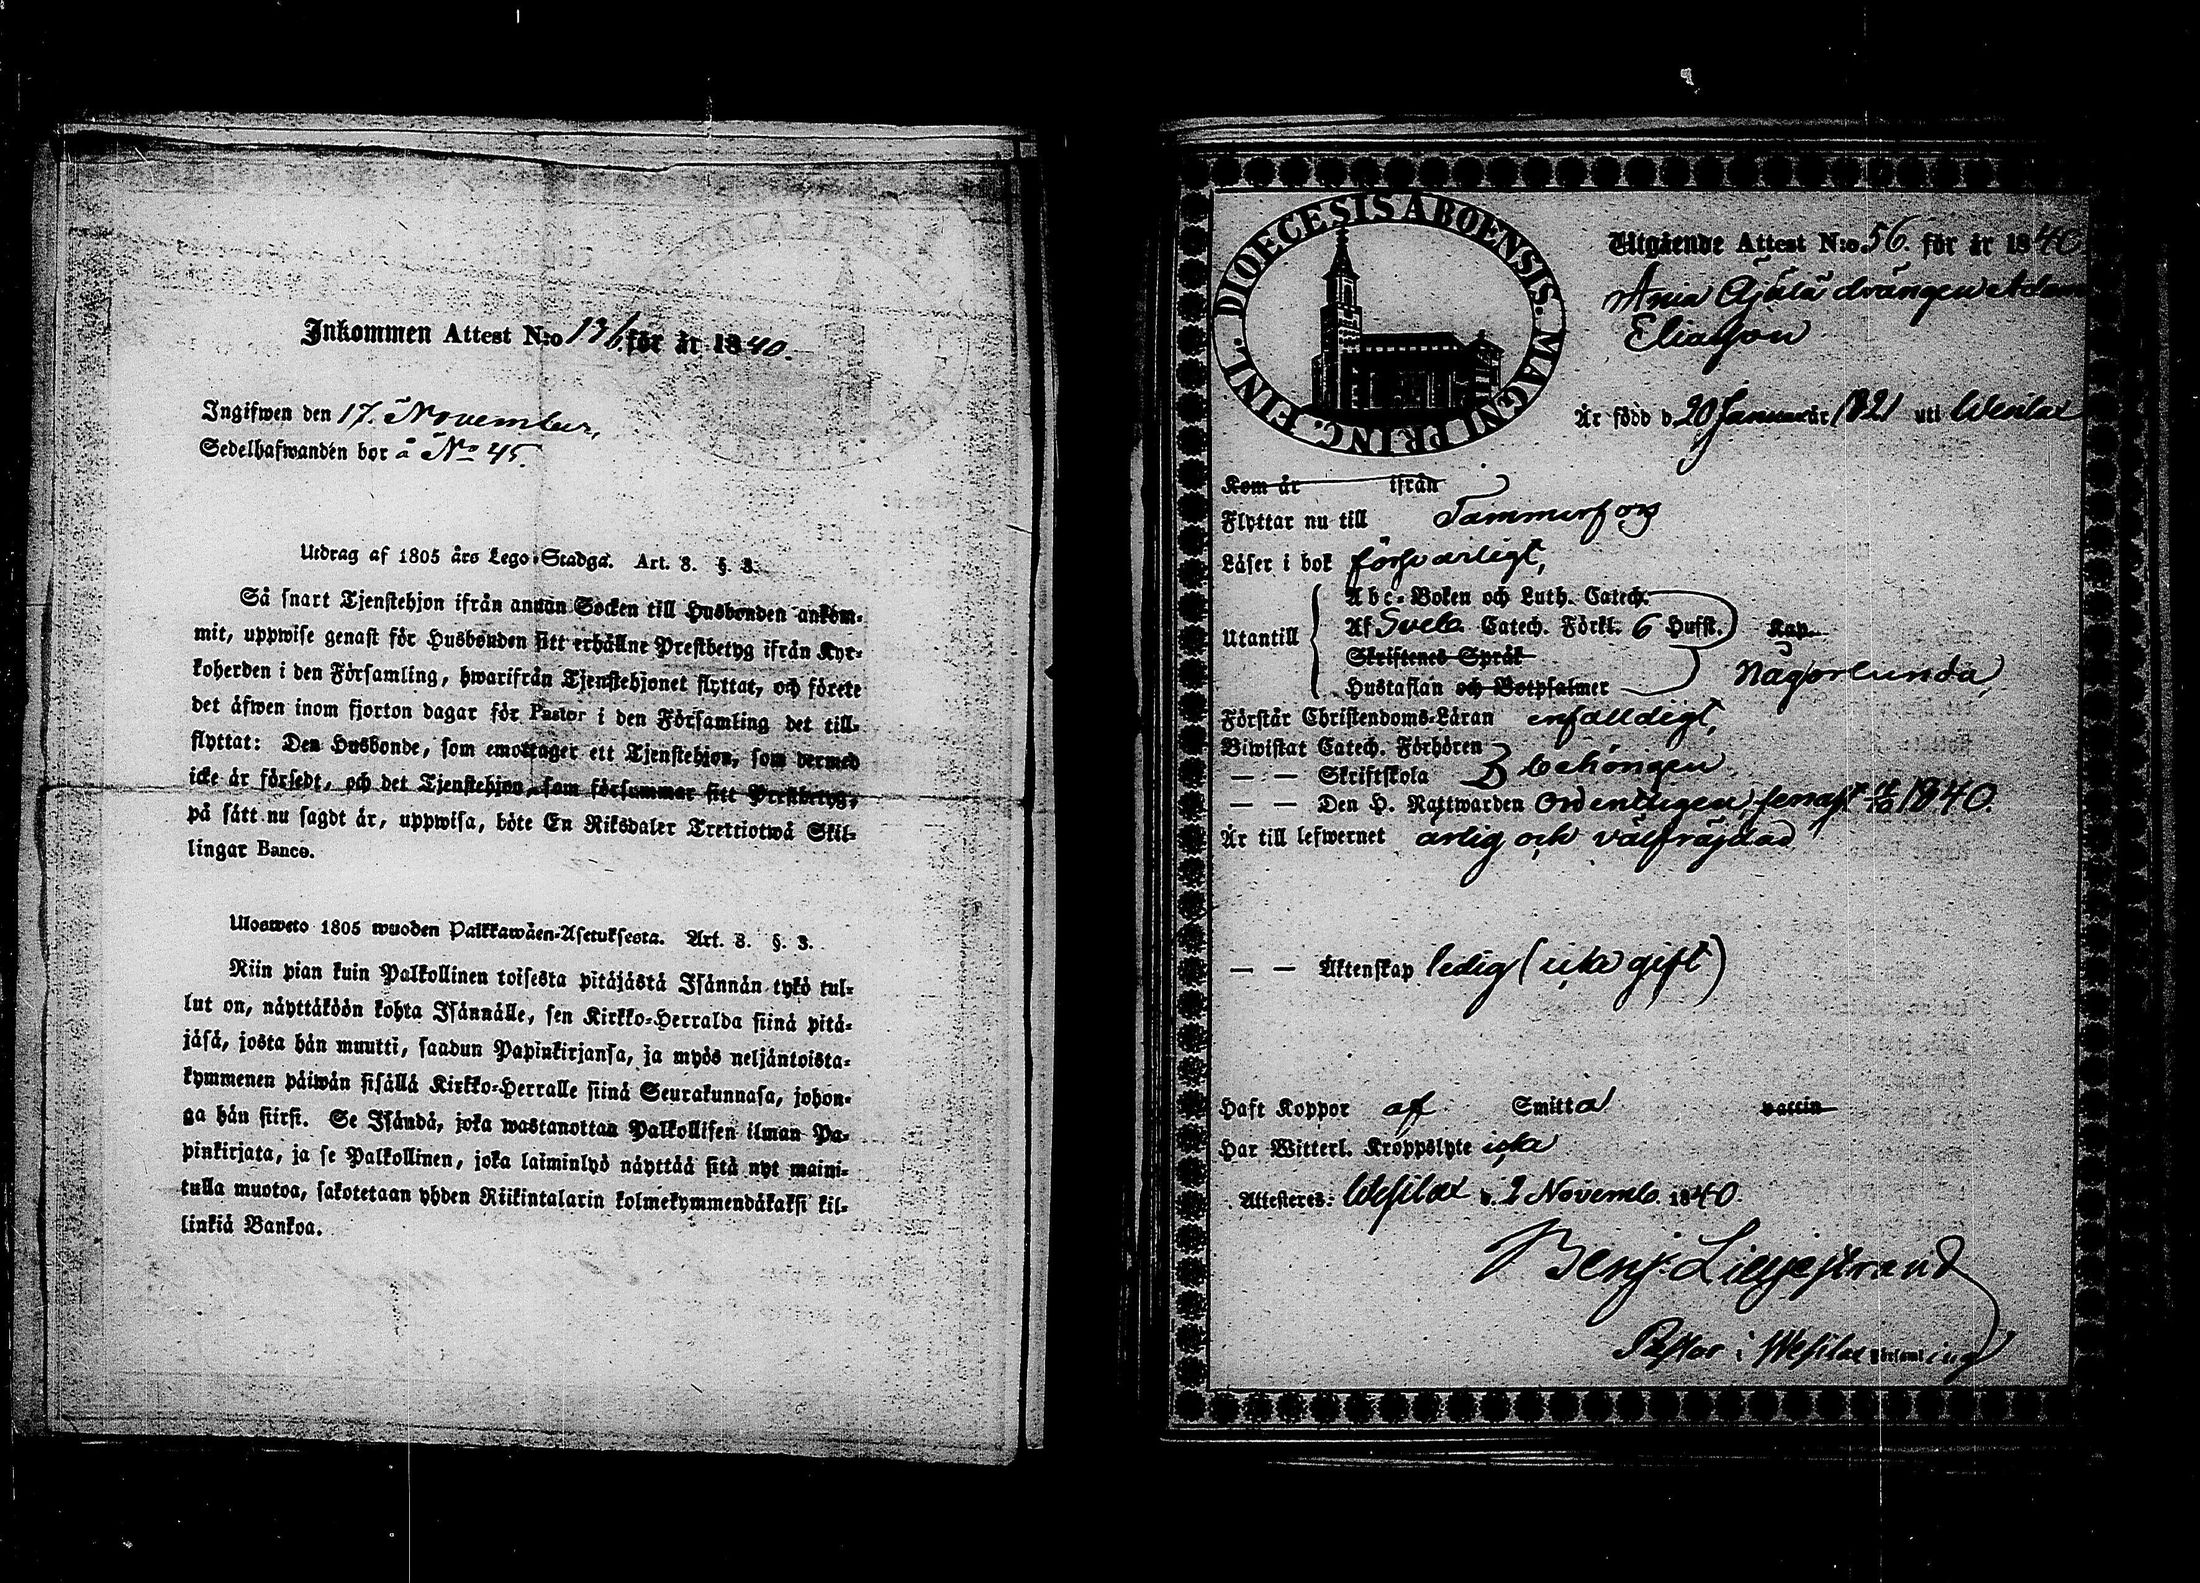 Inkommen Attest N:o 136 för år 1840.
Ingifwen den 17. November,
Sedelhafwanden bor å No 45.
Utdrag af 1805 års Lego-Stadga. Art. 8. §. 3.
Så snart Tjenstehjon ifrån annan Socken till Husbonden ankom-
mit, uppwise genast för Husbonden sitt erhållne Prestbetyg ifrån Kyr-
koherden i den Församling, hwarifrån Tjenstehjonet flyttat, och förete
det äfwen inom fjorton dagar för Pastor i den Församling det till-
flyttat: Den Husbonde, som emottager ett Tjenstehjon, som dermed
icke är försedt, och det Tjenstehjon, som försummar sitt Prestbetyg,
på sätt nu sagdt är, uppwisa, böte En Riksdaler Trettiotwå Skil-
lingar Banco.
Ulosweto 1805 wuoden Palkkawäen-Asetuksesta. Art. 8. §. 3.
Niin pian kuin Palkollinen toisesta pitäjästä Isännän tykö tul-
lut on, näyttäköön kohta Isännälle, sen Kirkko-Herralda siinä pitä-
jäsä, josta hän muutti, saadun Papinkirjansa, ja myös neljäntoista-
kymmenen päiwän sisällä Kirkko-Herralle siinä Seurakunnasa, johon-
ga hän siirsi. Se Isändä, joka wastanottaa Palkollisen ilman Pa-
pinkirjata, ja se Palkollinen, joka laiminlyö näyttää sitä nyt maini-
tulla muotoa, sakotetaan yhden Riikintalarin kolmekymmendäkaksi kil-
linkiä Bankoa.
DIOECESIS ABOENSIS. MAGNI PRINC. FINL.
Utgående Attest N:o 56. för år 1840
drängen Adam
Eliasson
Är född d. 20 Januari år 1821 uti Wesilax
Kom år ifrån
Flyttar nu till Tammerfors
Läser i bok försvarligt,
Utantill
Abc-Boken och Luth. Catech.
Af Sveb. Catech. Förkl. 6 Hufst. Kap.
Skriftenes Språk
Hustaflan och Botpsalmer
Någorlunda,
Förstår Christendoms-Läran enfalldigt,
Biwistat Catech. Förhören
— — Skriftskola behörigen
— — Den H. Nattwarden Ordentligen, senast 1840.
Är till lefwernet ärlig och välfräjdad
— — Äktenskap ledig (icke gift)
Haft Koppor af Smitta vaccin
Har Witterl. Kroppslyte icke
Attesteres. Wesilax d. 2 Novemb. 1840.
Benj. Lilljestrand
Pastor i Wesilax Församling